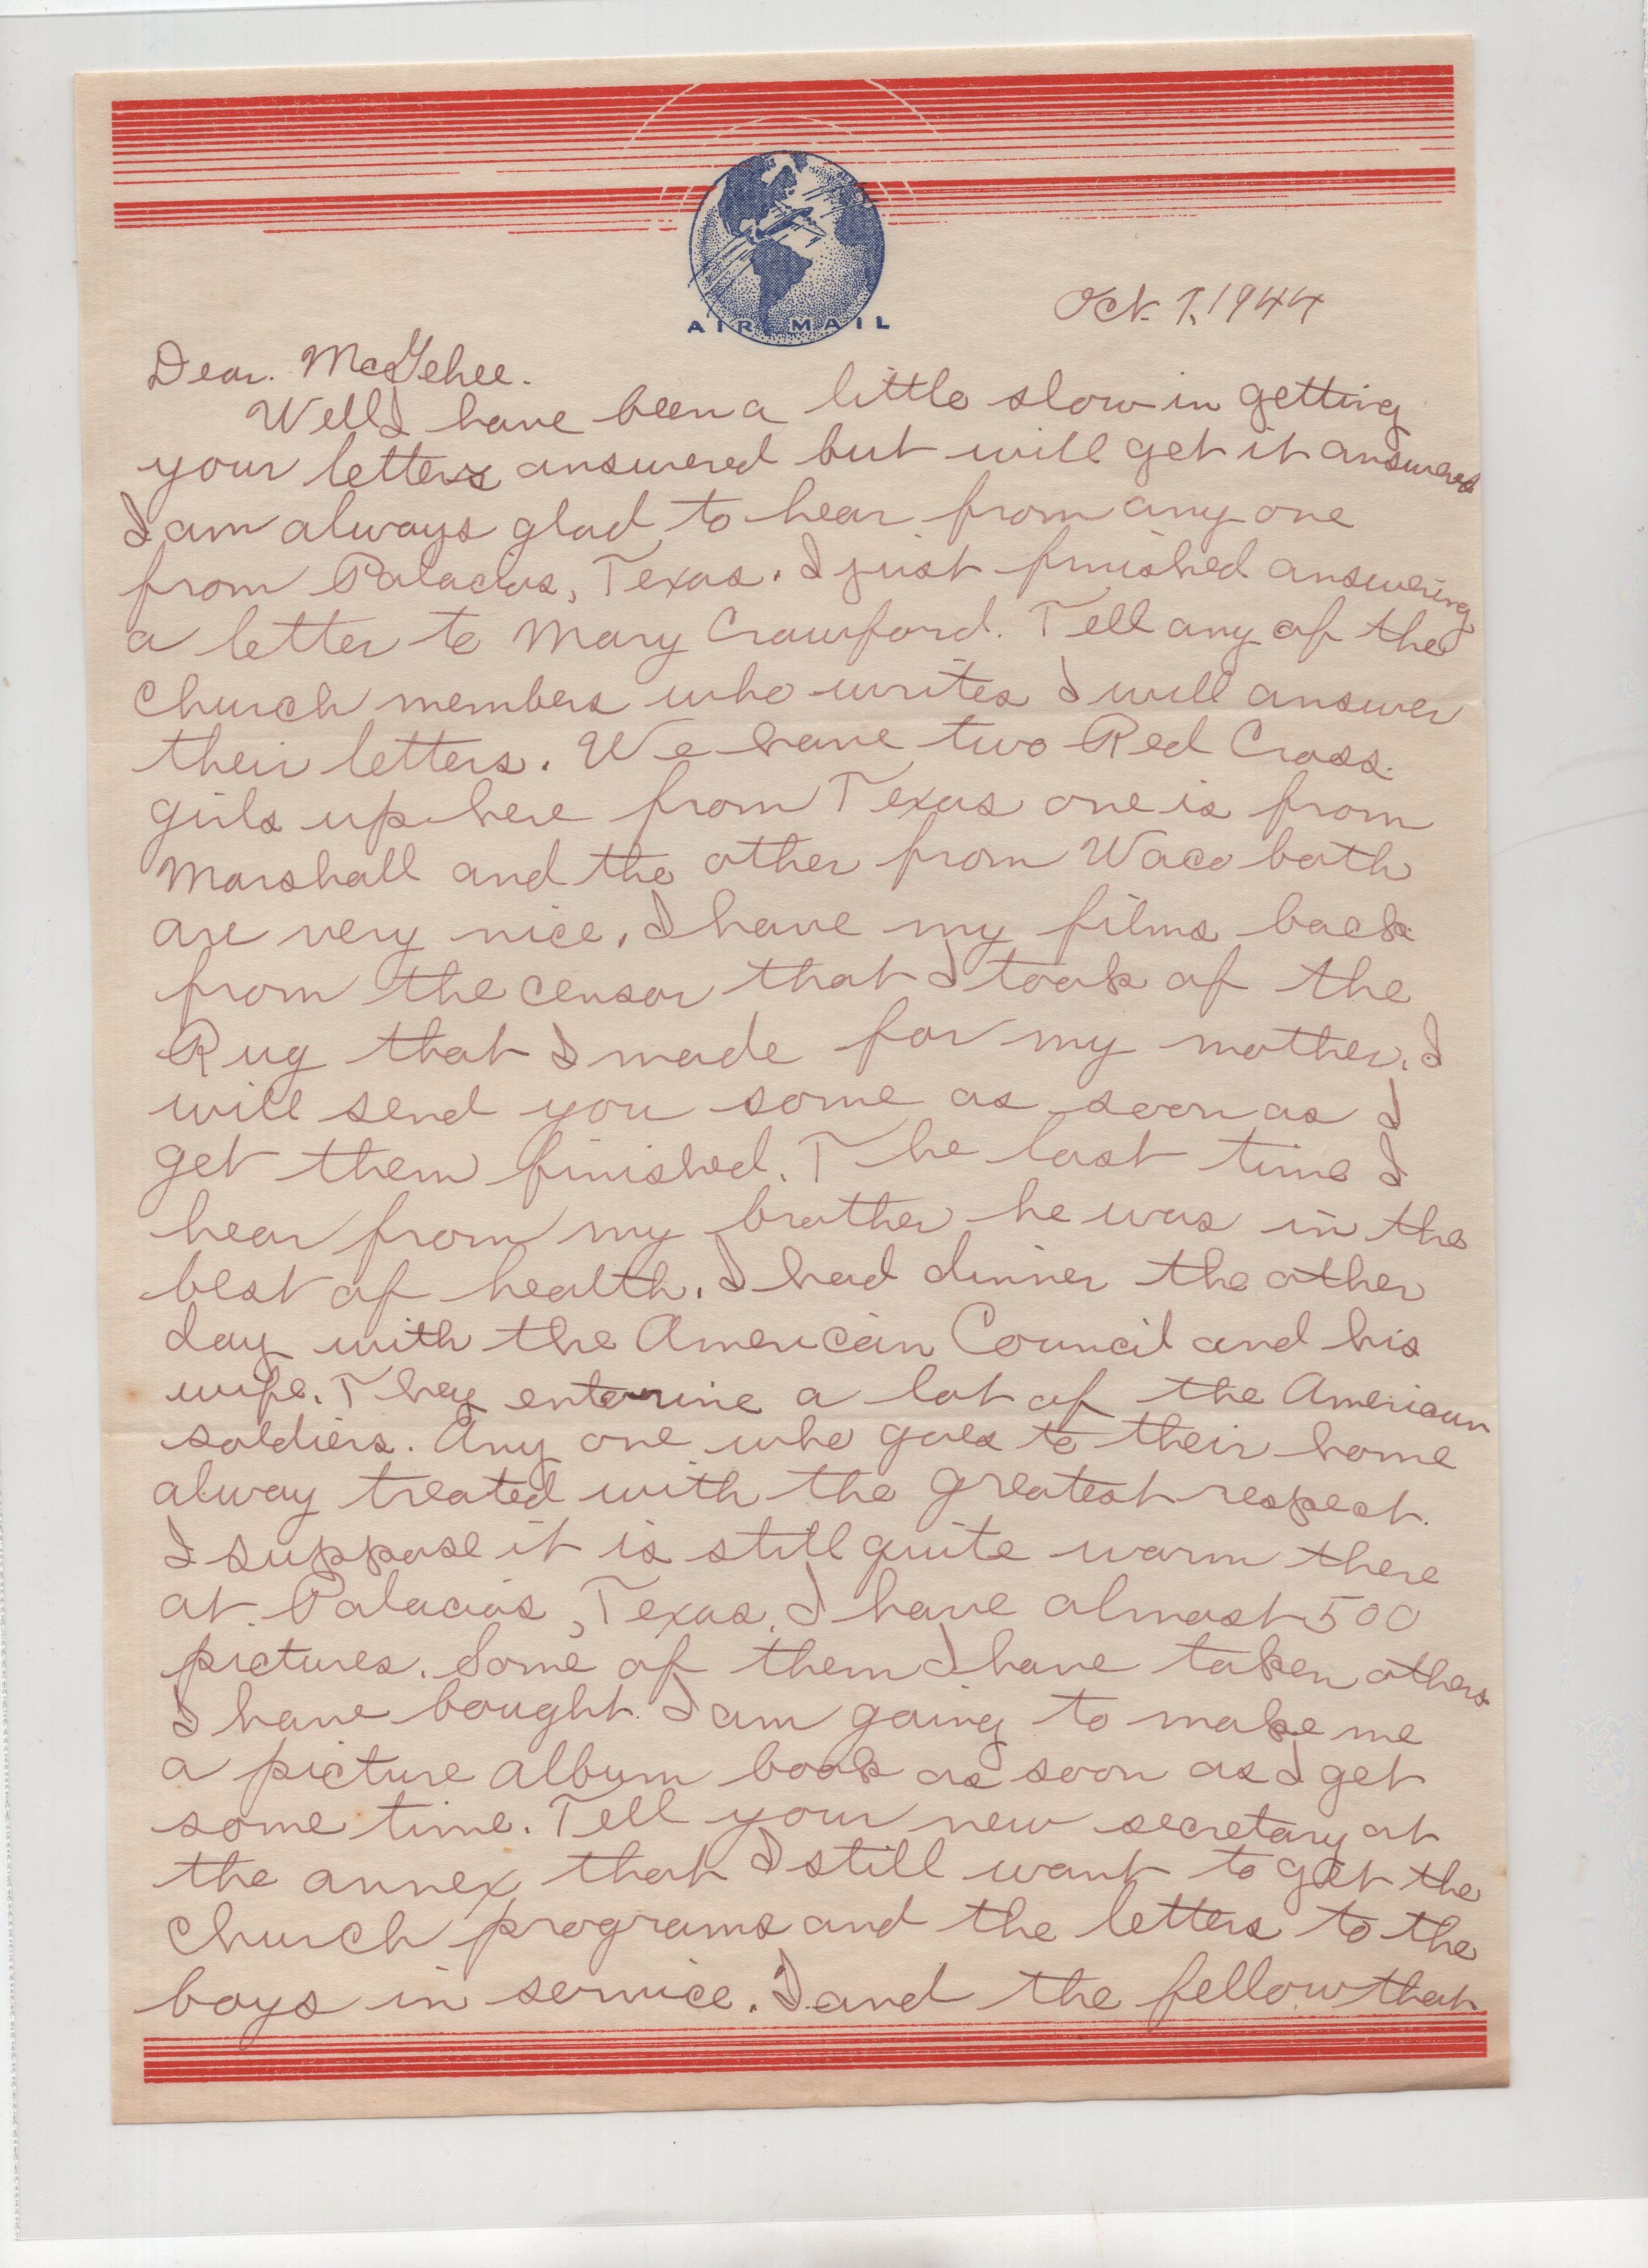 AIR MAIL
Oct. 7, 1944
Dear. McGehee.
Well I have been a little slow in getting
your letters answered but will get it answered
I am always glad to hear from any one
from Palacios, Texas. I just finished answering
a letter to Mary Crawford. Tell any of the
church members who writes I will answer
their letters. We have two Red Cross.
girls up here from Texas one is from
Marshall and the other from Waco both
are very nice. I have my films back
from the censor that I took of the
Rug that I made for my mother. I
will send you some as soon as I
get them finished. The last time I
hear from my brother he was in the
best of health. I had dinner the other
day with the American Council and his
wife. They enterine a lot of the American
soldiers. Any one who goes to their home
alway treated with the greatest respect.
I suppose it is still quite warm there
at Palacios, Texas. I have almost 500
pictures. Some of them I have taken others
I have bought. I am going to make me
a picture album book as soon as I get
some time. Tell your new secretary at
the annex that I still want to get the
church programs and the letters to the
boys in service. I and the fellow that